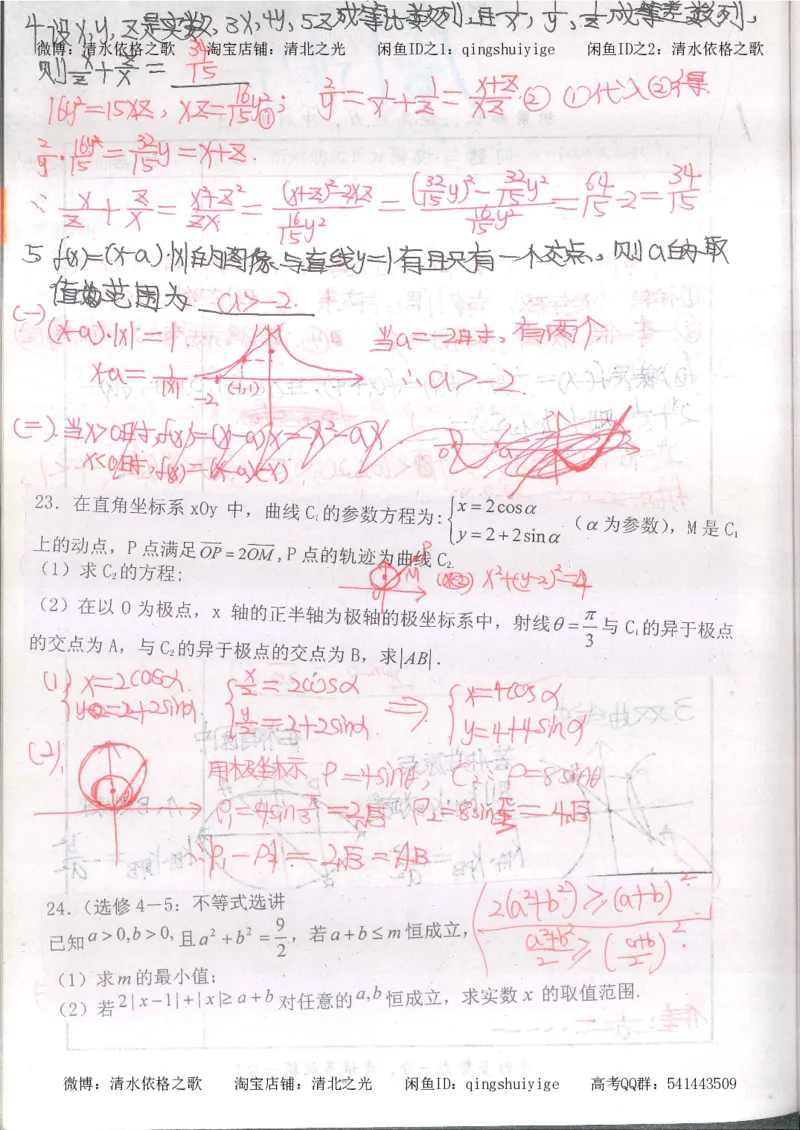 4.设x,y,z是实数,3x,4y,5z成等比数列,且1/x,1/y,1/z成等差数列,
微博：清水依格之歌 淘宝店铺：清北之光 闲鱼ID之1：qingshuiyige 闲鱼ID之2：清水依格之歌
则x/z+z/x= 34/15
16y²=15xz, xz=16/15y²①; 2/y=1/x+1/z=(x+z)/xz.② ①代入②得
2/y·16y²/15=32/15y=x+z.
∵ x/z+z/x=(x²+z²)/zx=((x+z)²-2xz)/(16/15y²)=((32/15y)²-32/15y²)/(16/15y²)=64/15-2=34/15
5 f(x)=(x-a)·|x|的图像与直线y=1有且只有一个交点,则a的取
值的范围为 a>-2.
(一)
(x-a)·|x|=1. 当a=-2时,有两个
x-a=1/|x| -2 (-1,1) ∴a>-2.
(二).当x>0时,f(x)=(x-a)x=x²-ax.
x<0时,f(x)=(x-a)(-x)
0 a
23. 在直角坐标系 xOy 中，曲线 C₁的参数方程为:{x=2cosα y=2+2sinα （α为参数），M 是 C₁
上的动点，P 点满足OP=2OM,P 点的轨迹为曲线 C₂.
P M
(1) 求 C₂的方程; x²+(y-2)²=4
(2) 在以 O 为极点，x 轴的正半轴为极轴的极坐标系中，射线θ=π/3 与 C₁的异于极点
的交点为 A，与 C₂的异于极点的交点为 B，求|AB|.
(1) {x=2cosα. y=2+2sinα {x/2=2cosα y/2=2+2sinα. ⇒ {x=4cosα y=4+4sinα
(2),
用极坐标示 ρ=4sinθ, C₂: ρ=8sinθ
ρ₁=4sinπ/3=2√3 ρ₂=8sinπ/3=4√3
∴|ρ₁-ρ₂|=2√3=AB
2(a²+b²)≥(a+b)².
24.（选修 4—5：不等式选讲
已知a>0,b>0,且a²+b²=9/2，若a+b≤m恒成立, (a²+b²)/2≥((a+b)/2)².
(1) 求m的最小值;
(2) 若2|x-1|+|x|≥a+b对任意的a,b恒成立，求实数 x 的取值范围.
微博：清水依格之歌 淘宝店铺：清北之光 闲鱼ID：qingshuiyige 高考QQ群：541443509